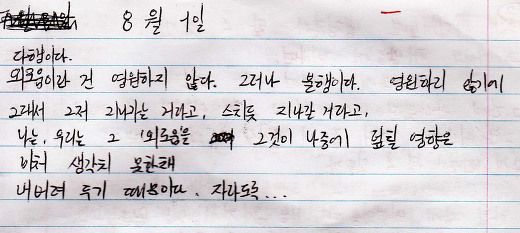 8월 1일
다행이다.
외로움이란 건 영원하지 않다. 그러나 불행이다. 영원하지 않기에
그래서 그저 지나가는 거라고, 스치듯 지나갈 거라고,
나는, 우리는 그 '외로움'을 그것이 나중에 덮칠 영향은
미처 생각치 못한채
내버려 두기 때문이다. 자라도록...